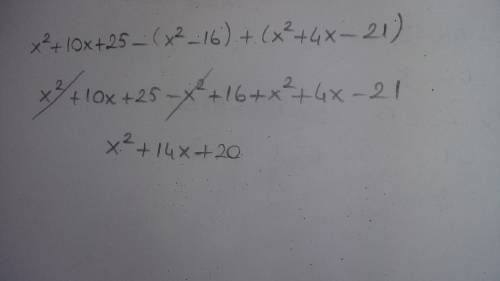 x²+10x+25-(x²-16)+(x²+4x-21)
x²+10x+25-x²+16+x²+4x-21
x²+14x+20